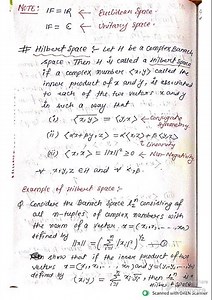 NOTE:
IF = IR Euclidean Space.
IF = ¢ Unitary Space.
# Hilbert Space :- Let H be a complex Banach
space. Then H is called a Hilbert Space
if a complex number <x,y> called the
inner product of x and y, is associated
to each of the two vectors x and y
in such a way that
(i) <x,y> = <y,x> Conjugate Symmetry
(ii) <αx+βy,z> = α<x,z>+β<y,z>
Linearity
(iii) <x,x> = ||x||² ≥ 0 Non-Negativity
∀ x,y,z ∈ H and ∀ α,β
Example of Hilbert space :-
Q Consider the Banach Space consisting of
all n-tuples of complex numbers with
the norm of a vector x = (x₁,x₂,...,xₙ)
defined by
||x|| = (Σ |xᵢ|²)^½
show that if the inner product of two
vectors
defined by <x,y> =
Scanned with OKEN Scanner